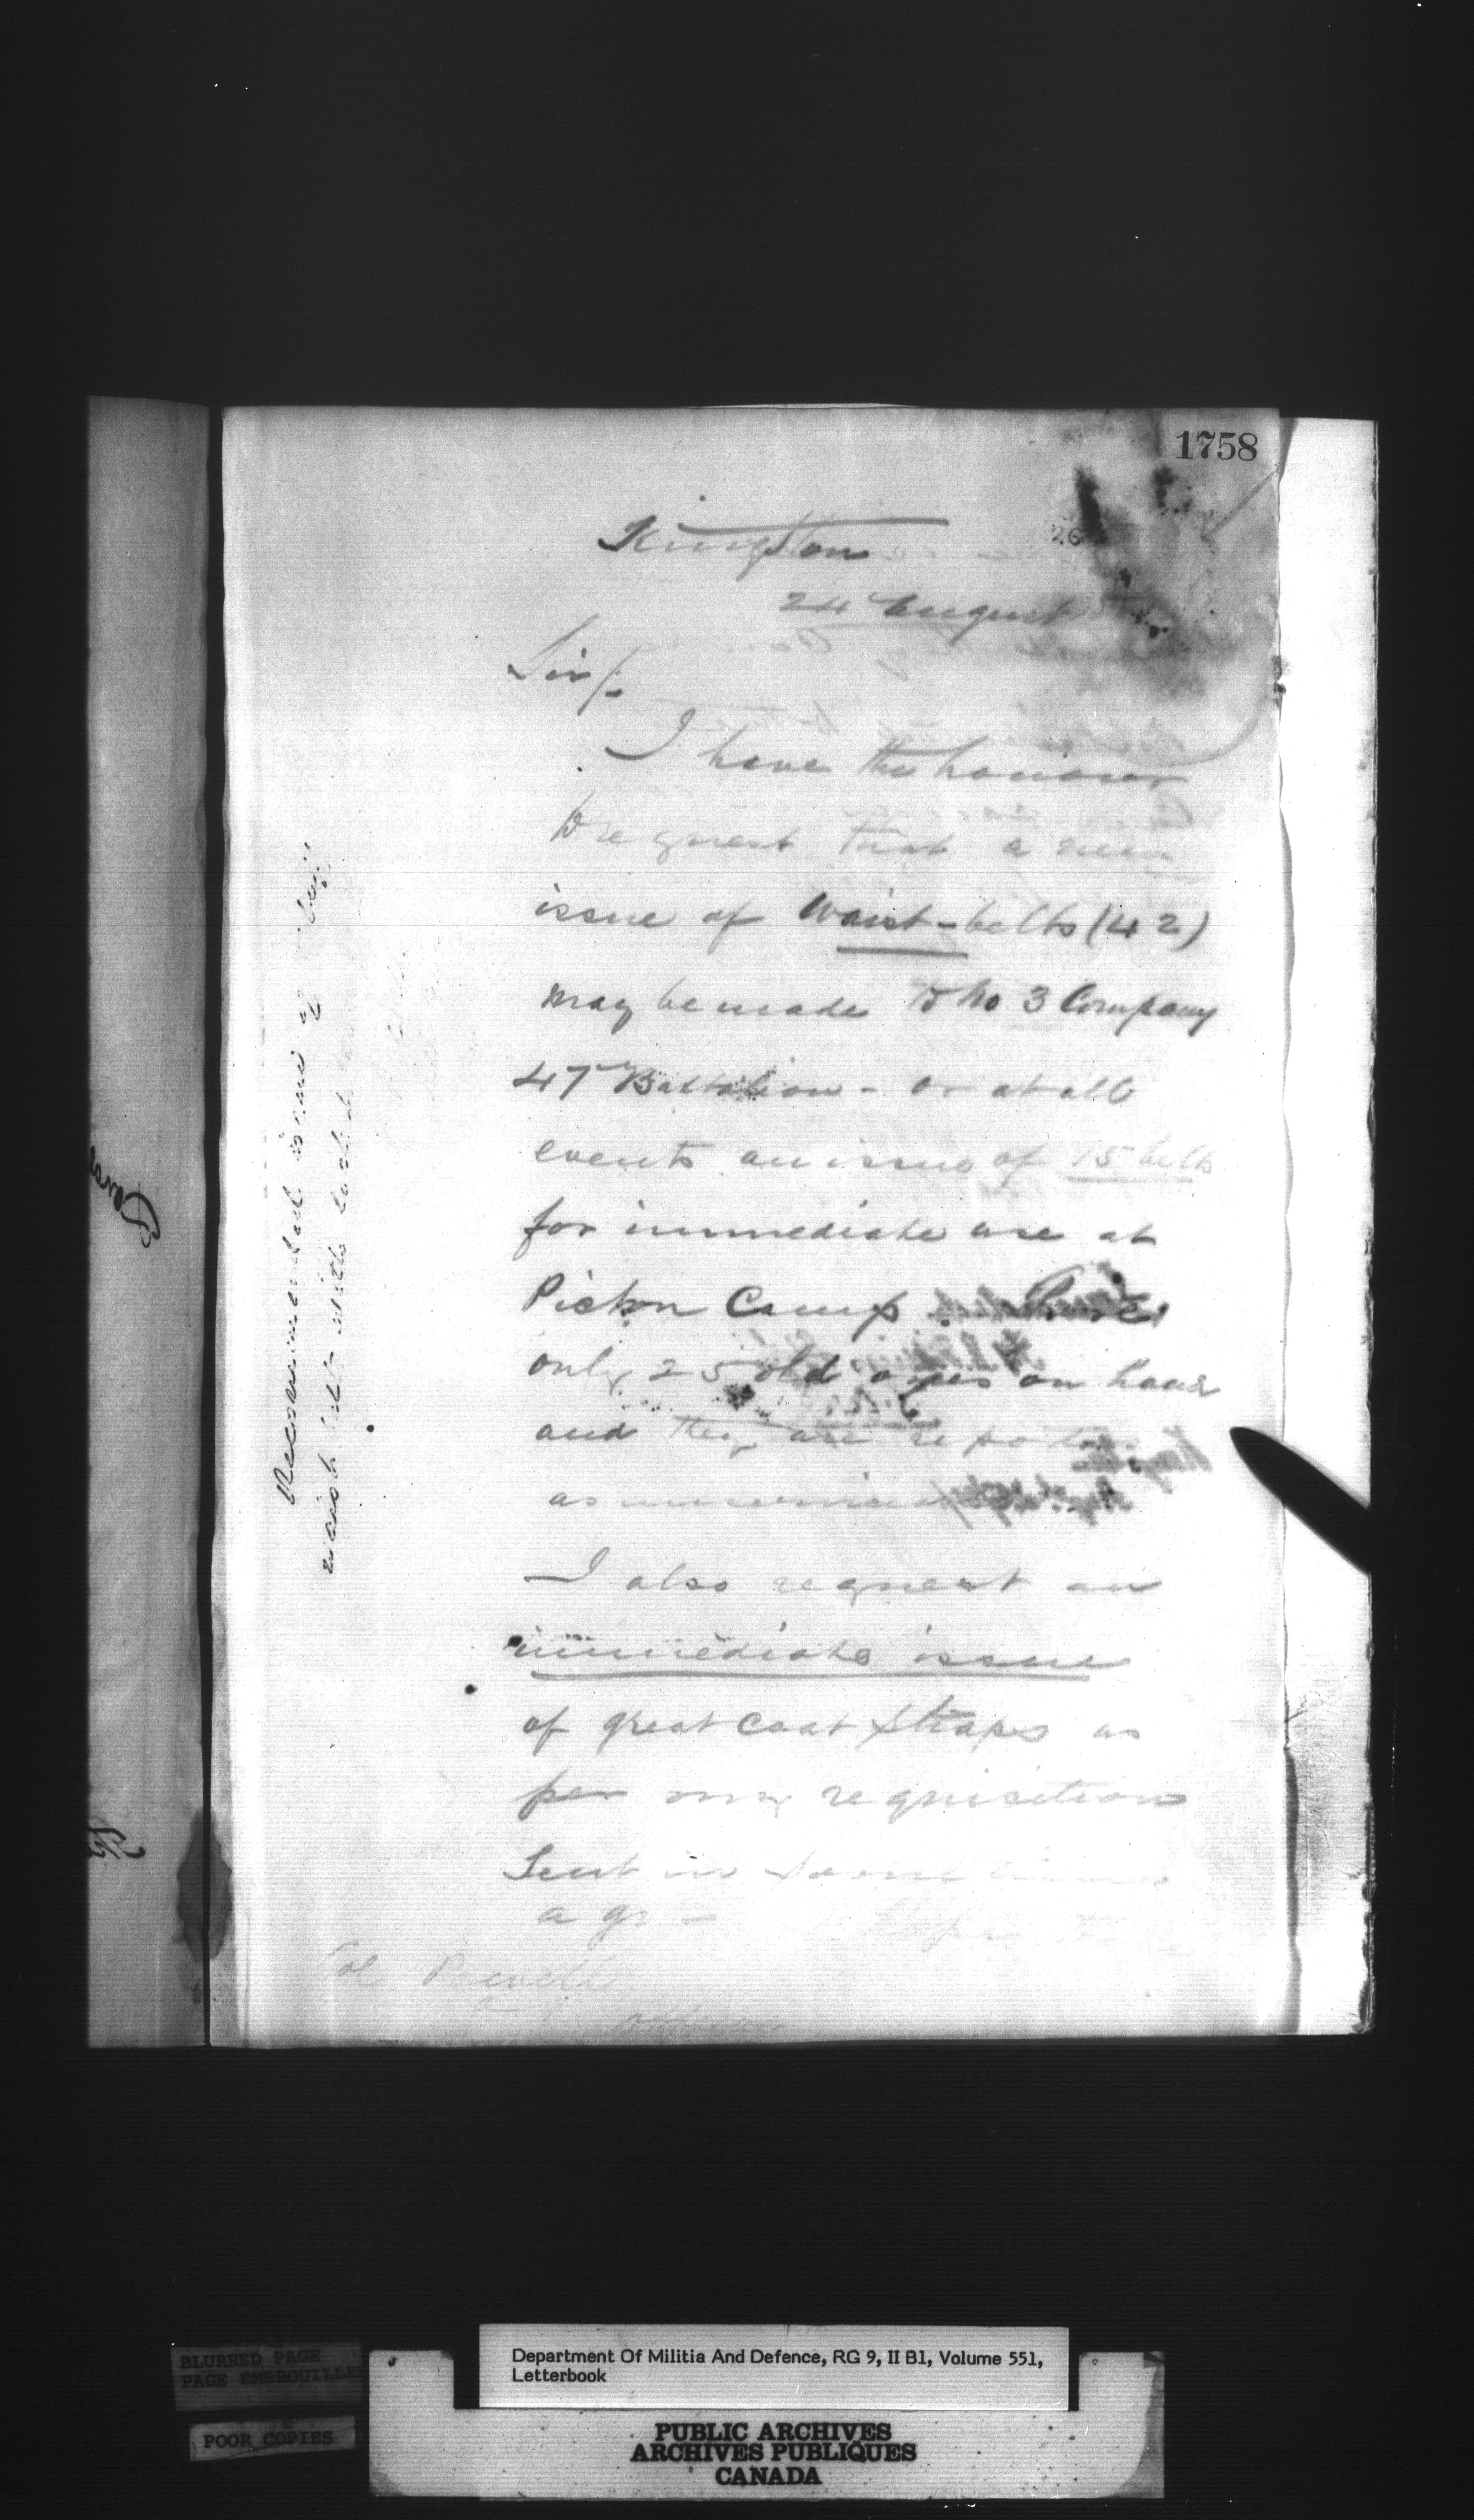 1758
26
Kingston
24 August
Sir/.
I have the honour
to request that a new
issue of Waist-belts (42)
may be made to No 3 Company
47 Battalion - or at all
events an issue of 15 belts
for immediate use at
Picton Camp.
only 25 old ones on hand
and they are
as
I also request an
immediate issue
of great coat straps as
per my requisition
Sent in some time
ago -
Col Powell
Ottawa
Recommended issue of
waist belt with
BLURRED PAGE
PAGE EMBROUILLEE
POOR COPIES
Department Of Militia And Defence, RG 9, II B1, Volume 551,
Letterbook
PUBLIC ARCHIVES
ARCHIVES PUBLIQUES
CANADA